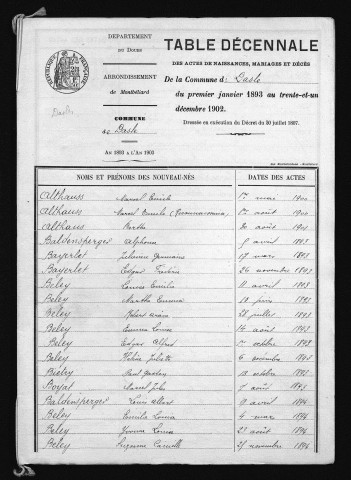 DÉPARTEMENT
DU DOUBS
ARRONDISSEMENT
de Montbéliard
COMMUNE
de Dasle
AN 1893 A L'AN 1902
Dasle
TABLE DÉCENNALE
DES ACTES DE NAISSANCES, MARIAGES ET DÉCÈS
De la Commune de Dasle
du premier janvier 1893 au trente-et-un
décembre 1902.
Dressée en exécution du Décret du 20 juillet 1807.
NOMS ET PRÉNOMS DES NOUVEAU-NÉS DATES DES ACTES
Althauss Marcel Emile 1er mai
Althauss Marcel Emile 1er août
Althaus Marthe 20 août
Baldensperger Alphonse 9 avril 1893
Bayerlet Germaine 17 mars 1893
Bayerlet Edgar Frédéric 26 novembre 1893
Beley Louise Emilie 11 avril 1893
Beley Marthe Emma 10 juin 1893
Beley Robert 28 juillet 1893
Beley Emma Louise 16 août 1893
Beley Edgar Alfred 1er octobre 1893
Beley Hélène Juliette 6 novembre 1893
Beley Paul Gustave 10 octobre 1893
Boyat Marcel Jules 7 août 1893
Baldensperger Louis Albert 9 avril 1894
Beley Emile Louis 4 mai 1894
Beley Yvonne Louise 21 août 1894
Beley Suzanne Camille 25 novembre 1894